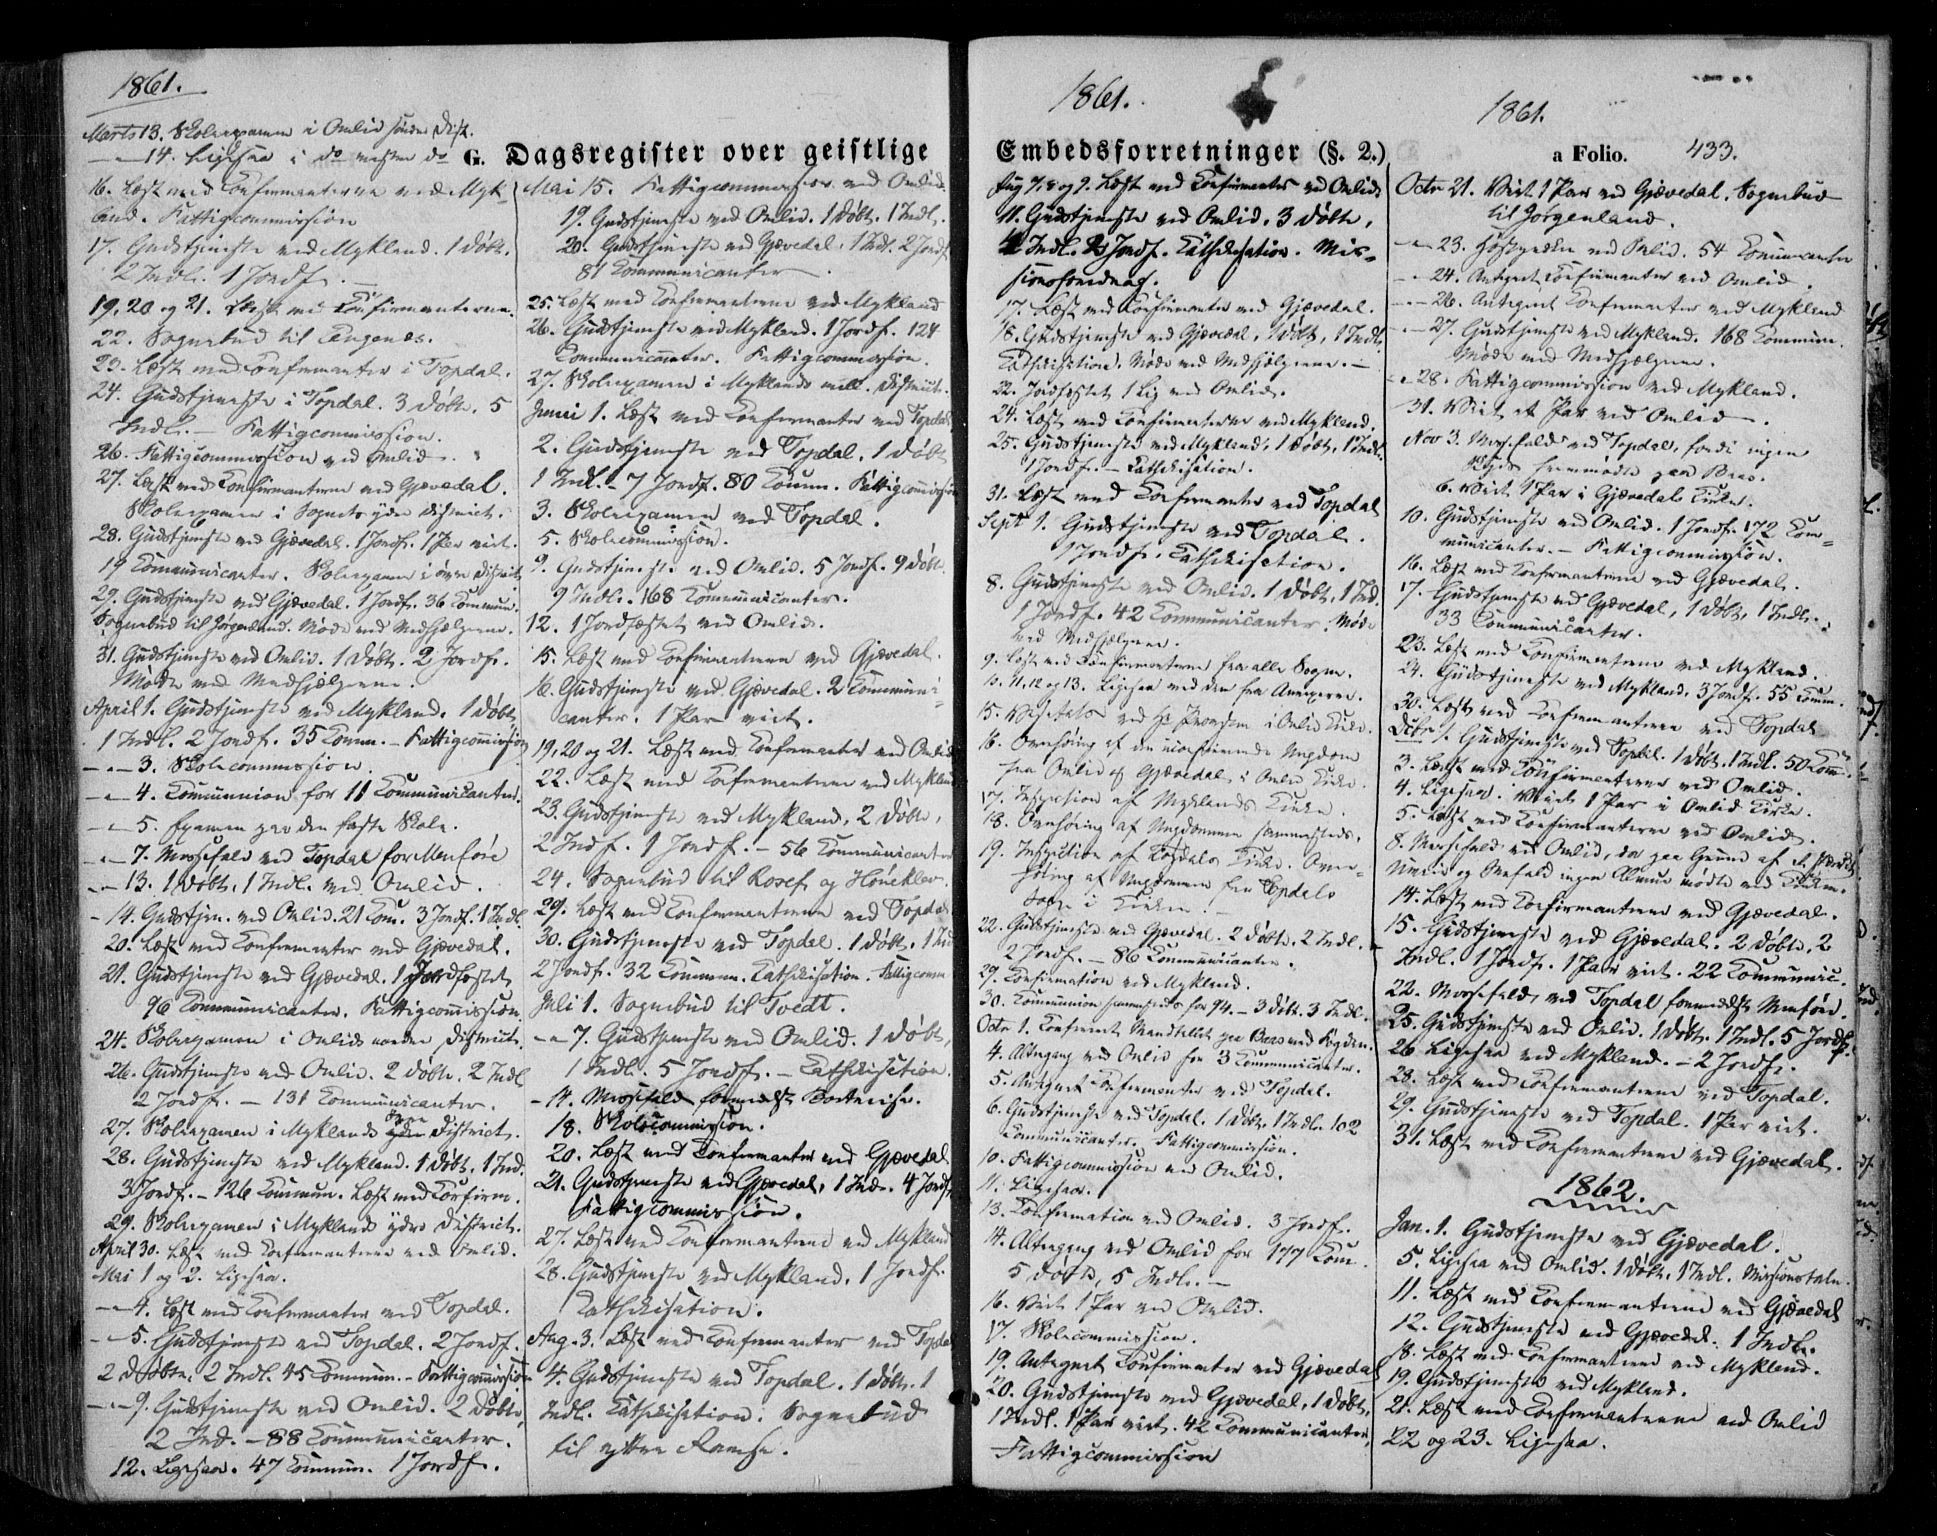 1861.
Marts 13. Skoleexamen i Omlid søndre Distr.
— " — 14. Ligesaa i do vestre do
G. Dagsregister over geistlige
16. Læst med Confirmanterne ved Myk-
land. Fattigcommission
17. Gudstjeneste ved Mykland. 1 døbt.
2 Indl. 1 Jordf. —
19, 20 og 21. Læst med Confirmanterne.
22. Sognebud til Engenes.
23. Læst med Confirmanter i Topdal.
24. Gudstjeneste i Topdal. 3 døbte. 5
Indl. — Fattigcommission.
26. Fattigcommission ved Omlid.
27. Læst med Confirmanterne ved Gjævedal.
Skoleexamen i Sognets ydre District.
28. Gudstjeneste ved Gjævedal. 1 Jordf. 1 Par viet.
19 Communicanter. Skoleexamen i øvre District
29. Gudstjeneste ved Gjævedal. 1 Jordf. 36 Commun.
Sognebud til Jørgenland. Møde med Medhjælperne.
31. Gudstjeneste ved Omlid. 1 døbt. 2 Jordf.
Møde med Medhjælperne.
April 1. Gudstjeneste ved Mykland. 1 døbt,
1 Indl. 2 Jordf. 35 Comm. — Fattigcommission
— " — 3. Skolecommission.
— " — 4. Communion for 11 Communicanter.
— " — 5. Examen paa den faste Skole.
— " — 7. Messefald ved Topdal for Menføre
— " — 13. 1 døbt, 1 Indl. ved Omlid.
— 14. Gudstjen. ved Omlid. 21 Com. 3 Jordf. 1 Indl.
20. Læst med Confirmanter ved Gjævedal.
21. Gudstjeneste ved Gjævedal. 1 Jordfæstet
96 Communicanter. Fattigcommission
24. Skoleexamen i Omlids nordre District.
26. Gudstjeneste ved Omlid. 2 døbte. 2 Indl
2 Jordf. — 131 Communicanter.
27. Skoleexamen i Myklands øvre District.
28. Gudstjeneste ved Mykland. 1 døbt, 1 Ind.
3 Jordf. — 126 Commun. Læst med Confirm.
29. Skoleexamen i Myklands ydre District.
April 30. Læst med Confirmanterne ved Omlid.
Mai 1 og 2. Ligesaa.
— " — 4. Læst med Confirmanter ved Topdal.
— " — 5. Gudstjeneste ved Topdal. 2 Jordf.
2 Døbte, 2 Indl. 45 Commun. — Fattigcommission
— " — 9. Gudstjeneste ved Omlid. 2 døbte,
2 Ind. — 88 Communicanter.
12. Ligesaa. 47 Commun. 1 Jordf.
Mai 15. Fattigcommission ved Omlid.
19. Gudstjeneste ved Omlid. 1 døbt. 1 Indl.
20. Gudstjeneste ved Gjævedal. 1 Indl. 2 Jordf
81 Communicanter.
25. Læst med Confirmanterne ved Mykland
26. Gudstjeneste ved Mykland. 1 Jordf. 124
Communicanter. Fattigcommission.
27. Skoleexamen i Myklands mell. District.
Junii 1. Læst med Confirmanter ved Topdal
2. Gudstjeneste ved Topdal. 1 døbt
1 Indl. — 7 Jordf. 80 Comm. Fattigcommission
3. Skoleexamen ved Topdal.
5. Skolecommission.
9. Gudstjeneste ved Omlid. 5 Jordf. 9 døbte.
9 Indl. 168 Communicanter.
12. 1 Jordfæstet ved Omlid.
15. Læst med Confirmanterne ved Gjævedal.
16. Gudstjeneste ved Gjævedal. 2 Communi-
canter. 1 Par viet.
19, 20 og 21. Læst med Confirmanter ved Omlid
22. Læst med Confirmanterne ved Mykland
23. Gudstjeneste ved Mykland, 2 døbte,
2 Indf. 1 Jordf. — 56 Communicanter
24. Sognebud til Rosef og
29. Læst med Confirmanterne ved Topdal
30. Gudstjeneste ved Topdal. 1 døbt. 1 Ind
2 Jordf. 32 Commun. Cathekisation. Fattigcomm
Juli 1. Sognebud til Tvedt.
— " — 7. Gudstjeneste ved Omlid. 1 døbt,
1 Indl. 5 Jordf. — Cathekisation.
— 14. Messefald formedelst Bortreise.
18. Skolecommission.
20. Læst med Confirmanter ved Gjævedal
21. Gudstjeneste ved Gjævedal, 1 Ind. 4 Jordf
Fattigcommission.
27. Læst med Confirmanterne ved Mykland
28. Gudstjeneste ved Mykland. 1 Jordf.
Cathekisation.
Aug. 3. Læst med Confirmanter ved Topdal
4. Gudstjeneste ved Topdal. 1 døbt. 1
Indl. Cathekisation. Sognebud
til ytre Ramse.
1861.
Embedsforretninger (§. 2.)
Aug 7, 8 og 9. Læst med Confirmanter ved Omlid
11. Gudstjeneste ved Omlid. 3 døbte,
Indl. Jordf. Cathekisation. Mis-
sionsforedrag.
17. Læst med Confirmanter ved Gjævedal.
18. Gudstjeneste ved Gjævedal, 1 døbt, 1 Indl.
Cathekisation. Møde med Medhjælperne. —
22. Jordfæstet 1 Lig ved Omlid.
24. Læst med Confirmanterne ved Mykland.
25. Gudstjeneste ved Mykland, 1 døbt, 1 Indl.
1 Jordf. — Cathekisation.
31. Læst med Confirmanter ved Topdal
Septr 1. Gudstjeneste ved Topdal.
1 Jordf. Cathekisation.
8. Gudstjeneste ved Omlid. 1 døbt, 1 Ind.
1 Jordf. 42 Communicanter. Møde
med Medhjælperne.
9. Læst med Confirmanterne fra alle Sogne.
10. 11, 12 og 13. Ligesaa med dem fra Annexerne.
15. Visitats ved Hr Provsten i Omlid Kirke.
16. Overhøring af den ukonfirmerede Ungdom
fra Omlid og Gjævedal i Omlid Kirke.
17. Inspection af Myklands Kirke.
18. Overhøring af Ungdommen sammesteds.
19. Inspection af Topdals Kirke. Over-
høring af Ungdommen fra Topdals
Sogn i Kirken. —
22. Gudstjeneste ved Gjævedal. 2 døbte. 2 Indl.
2 Jordf. — 86 Communicanter.
29. Confirmation ved Mykland.
30. Communion sammesteds for 94. — 3 døbt. 3 Indl.
Octr 1. Confereret Mandtallet paa Baas med Fogden.
4. Altergang ved Omlid for 3 Communicanter.
5. Antegnet Confirmanter ved Topdal.
6. Gudstjeneste ved Topdal. 1 døbt, 1 Indl. 102
Communicanter. Fattigcommission.
10. Fattigcommission ved Omlid.
11. Ligesaa.
13. Confirmation ved Omlid. 3 Jordf.
14. Altergang ved Omlid for 177 Com.
5 døbte, 5 Indl. —
16. Viet 1 Par ved Omlid.
17. Skolecommission.
19. Antegnet Confirmanter ved Gjævedal
20. Gudstjeneste ved Gjævedal, 1 døbt,
1 Indl. 1 Par viet. 42 Communicanter,
Fattigcommission
1861.
a Folio. 433.
Octr 21. Viet 1 Par ved Gjævedal. Sognebud
til Jørgenland.
— " — 23. ved Omlid. 54 Communicanter
— " — 24. Antegnet Confirmanter ved Omlid.
— " — 26. Antegnet Confirmanter ved Mykland
— " — 27. Gudstjeneste ved Mykland. 168 Commun.
Møde med Medhjælperne.
— " 28. Fattigcommission ved Mykland.
31. Viet et Par ved Omlid.
Nov 3. Messefald ved Topdal, fordi ingen
Skyds fremmødte paa Baas.
6. Viet 1 Par i Gjævedals Kirke.
10. Gudstjeneste ved Omlid. 1 Jordf. 172 Com-
municanter. — Fattigcommission.
16. Læst med Confirmanterne ved Gjævedal.
17. Gudstjeneste ved Gjævedal, 1 døbt, 1 Indl.
33 Communicanter.
23. Læst med Confirmanterne ved Mykland.
24. Gudstjeneste ved Mykland. 3 Jordf. 55 Comm.
30. Læst med Confirmanterne ved Topdal
Decbr 1. Gudstjeneste ved Topdal. 1 døbt. 1 Indl. 50 Com.
3. Læst med Confirmanterne ved Omlid.
4. Ligesaa. Viet 1 Par i Omlid Kirke.
5. Læst med Confirmanterne ved Omlid.
8. Messefald ved Omlid, da paa Grund af
og Snefald ingen Almue mødte ved Kirken.
14. Læst med Confirmanterne ved Gjævedal.
15. Gudstjeneste ved Gjævedal. 2 døbte, 2
Indl. 1 Jordf. 1 Par viet. 22 Communic.
22. Messefald ved Topdal formedelst Menføre.
25. Gudstjeneste ved Omlid. 1 døbt. 1 Indl. 5 Jordf.
26 Ligesaa ved Mykland. — 2 Jordf.
28. Læst med Confirmanterne ved Topdal.
29. Gudstjeneste ved Topdal. 1 Par viet.
31. Læst med Confirmanterne ved Gjævedal.
1862.
Jan. 1. Gudstjeneste ved Gjævedal.
5. Ligesaa ved Omlid. 1 døbt, 1 Indl. Missionstale.
11. Læst med Confirmanterne ved Gjævedal
12. Gudstjeneste ved Gjævedal. 1 Indl.
18. Læst med Confirmanterne ved Mykland.
19. Gudstjeneste ved Mykland.
21. Læst med Confirmanterne ved Omlid
22 og 23. Ligesaa.